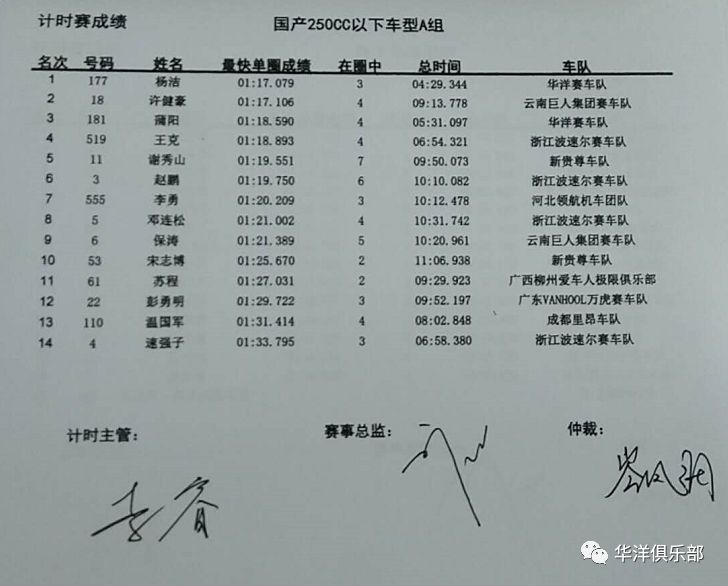 计时赛成绩 国产250CC以下车型A组
名次 号码 姓名 最快单圈成绩 在圈中 总时间 车队
1 177 杨洁 01:17.079 3 04:29.344 华洋赛车队
2 18 许健豪 01:17.106 4 09:13.778 云南巨人集团赛车队
3 181 蒲阳 01:18.590 4 05:31.097 华洋赛车队
4 519 王克 01:18.893 4 06:54.321 浙江波速尔赛车队
5 11 谢秀山 01:19.551 7 09:50.073 新贵尊车队
6 3 赵鹏 01:19.750 6 10:10.082 浙江波速尔赛车队
7 555 李勇 01:20.209 3 10:12.478 河北领航机车团队
8 5 邓连松 01:21.002 4 10:31.742 浙江波速尔赛车队
9 6 保涛 01:21.389 5 10:20.961 云南巨人集团赛车队
10 53 宋志博 01:25.670 2 11:06.938 新贵尊车队
11 61 苏程 01:27.031 2 09:29.923 广西柳州爱车人极限俱乐部
12 22 彭勇明 01:29.722 3 09:52.197 广东VANHOOL万虎赛车队
13 110 温国军 01:31.414 4 08:02.848 成都里昂车队
14 4 速强子 01:33.795 3 06:58.380 浙江波速尔赛车队
计时主管： 赛事总监： 仲裁：
李睿
华洋俱乐部